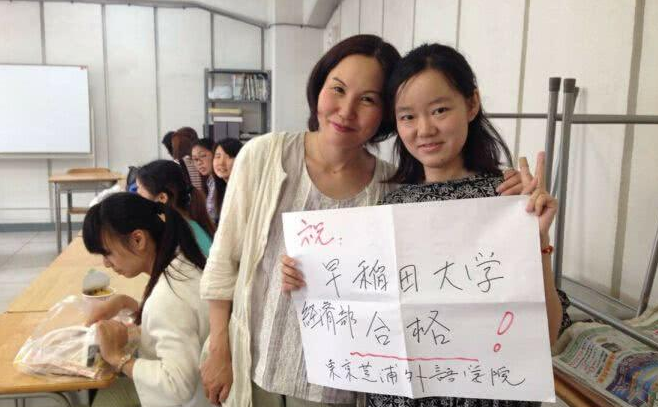 祝:
早稲田大学
経済部 合格!
東京芝浦外語学院